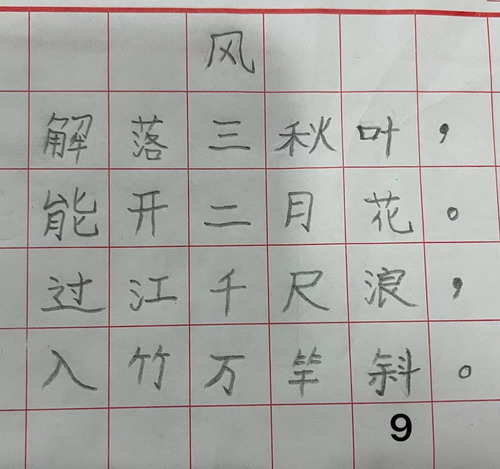 风
解落三秋叶，
能开二月花。
过江千尺浪，
入竹万竿斜。
9